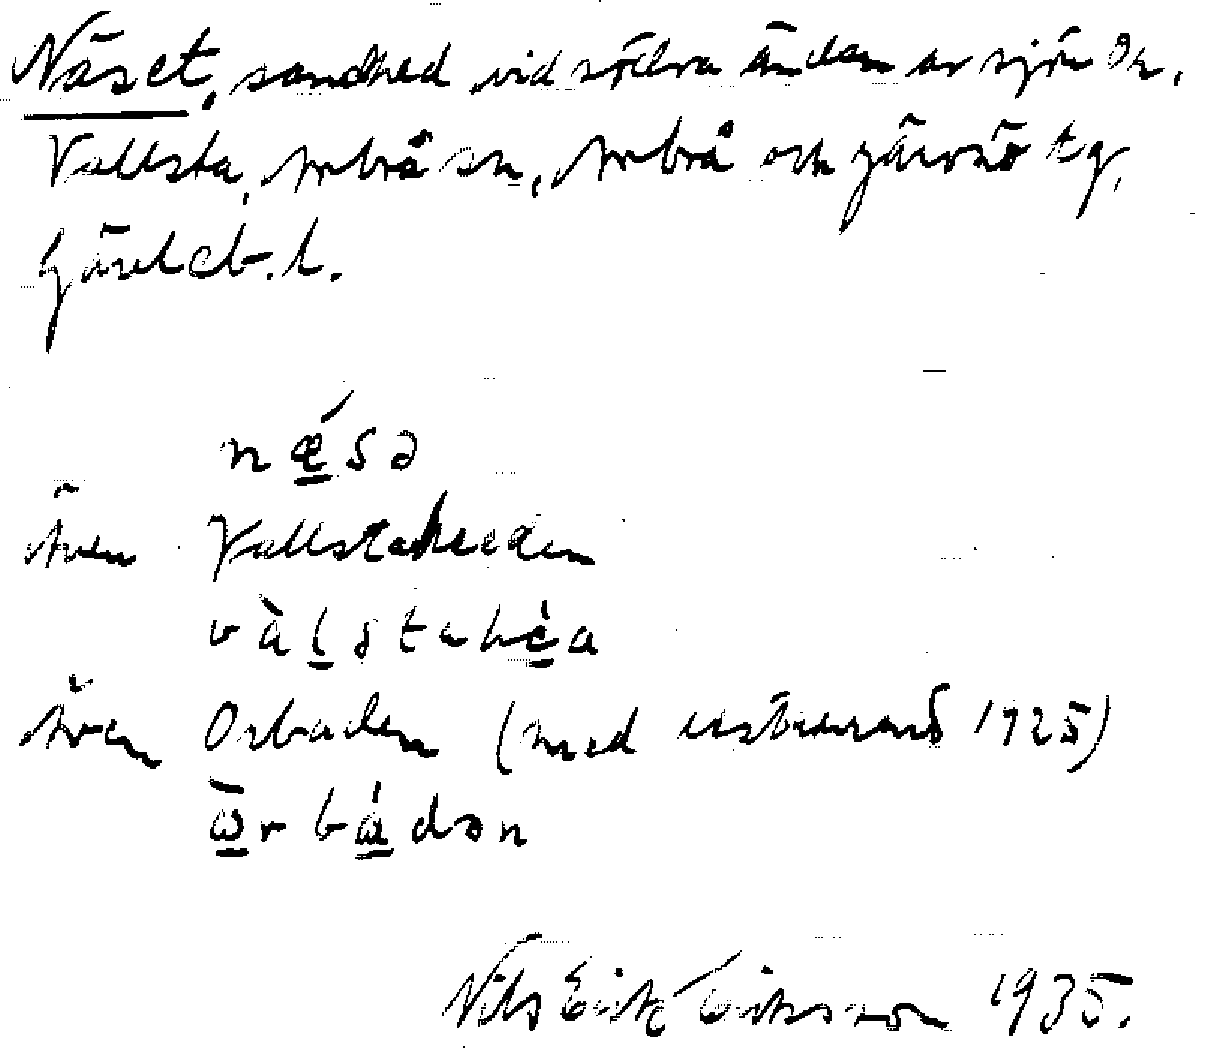 Näset, sandhed vid södra änden av sjön Or,
Vallsta, Arbrå sn, Arbrå och Järvsö tg,
Gävleb. l.
nǽ̱sə
Även Vallstaheden
vàḻstahe̱̍a
Även Orbaden (med restaurant 1925)
ω̱̄rbα̱̍dən
Nils Erik Eriksson 1935.